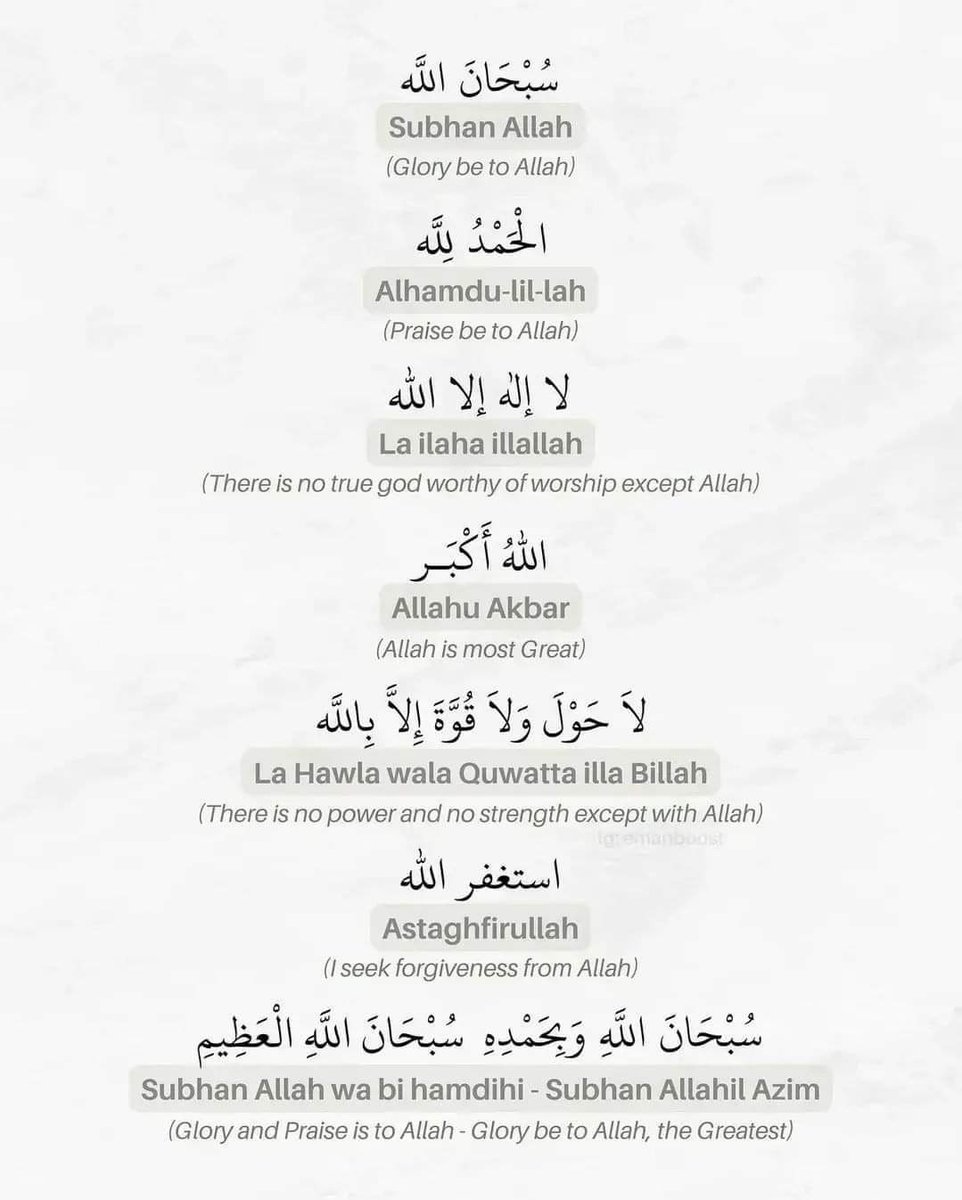 سُبْحَانَ اللَّه
Subhan Allah
(Glory be to Allah)
الْحَمْدُ لِلَّه
Alhamdu-lil-lah
(Praise be to Allah)
لا إلٰه إلا الله
La ilaha illallah
(There is no true god worthy of worship except Allah)
اللهُ أَكْبَـر
Allahu Akbar
(Allah is most Great)
لاَ حَوْلَ وَلاَ قُوَّةَ إِلاَّ بِاللَّه
La Hawla wala Quwatta illa Billah
(There is no power and no strength except with Allah)
ig: emanboost
استغفر الله
Astaghfirullah
(I seek forgiveness from Allah)
سُبْحَانَ اللَّهِ وَبِحَمْدِهِ سُبْحَانَ اللَّهِ الْعَظِيمِ
Subhan Allah wa bi hamdihi - Subhan Allahil Azim
(Glory and Praise is to Allah - Glory be to Allah, the Greatest)